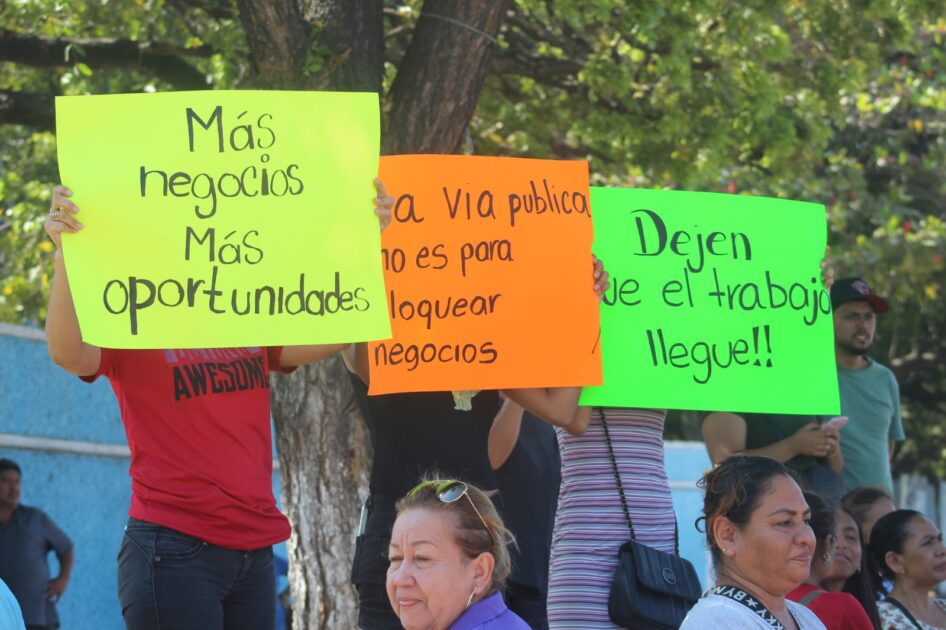 Más
negocios
Más
oportunidades
a Via publica
no es para
loquear
negocios
Dejen
ue el trabajo
llegue!!
AWESOME